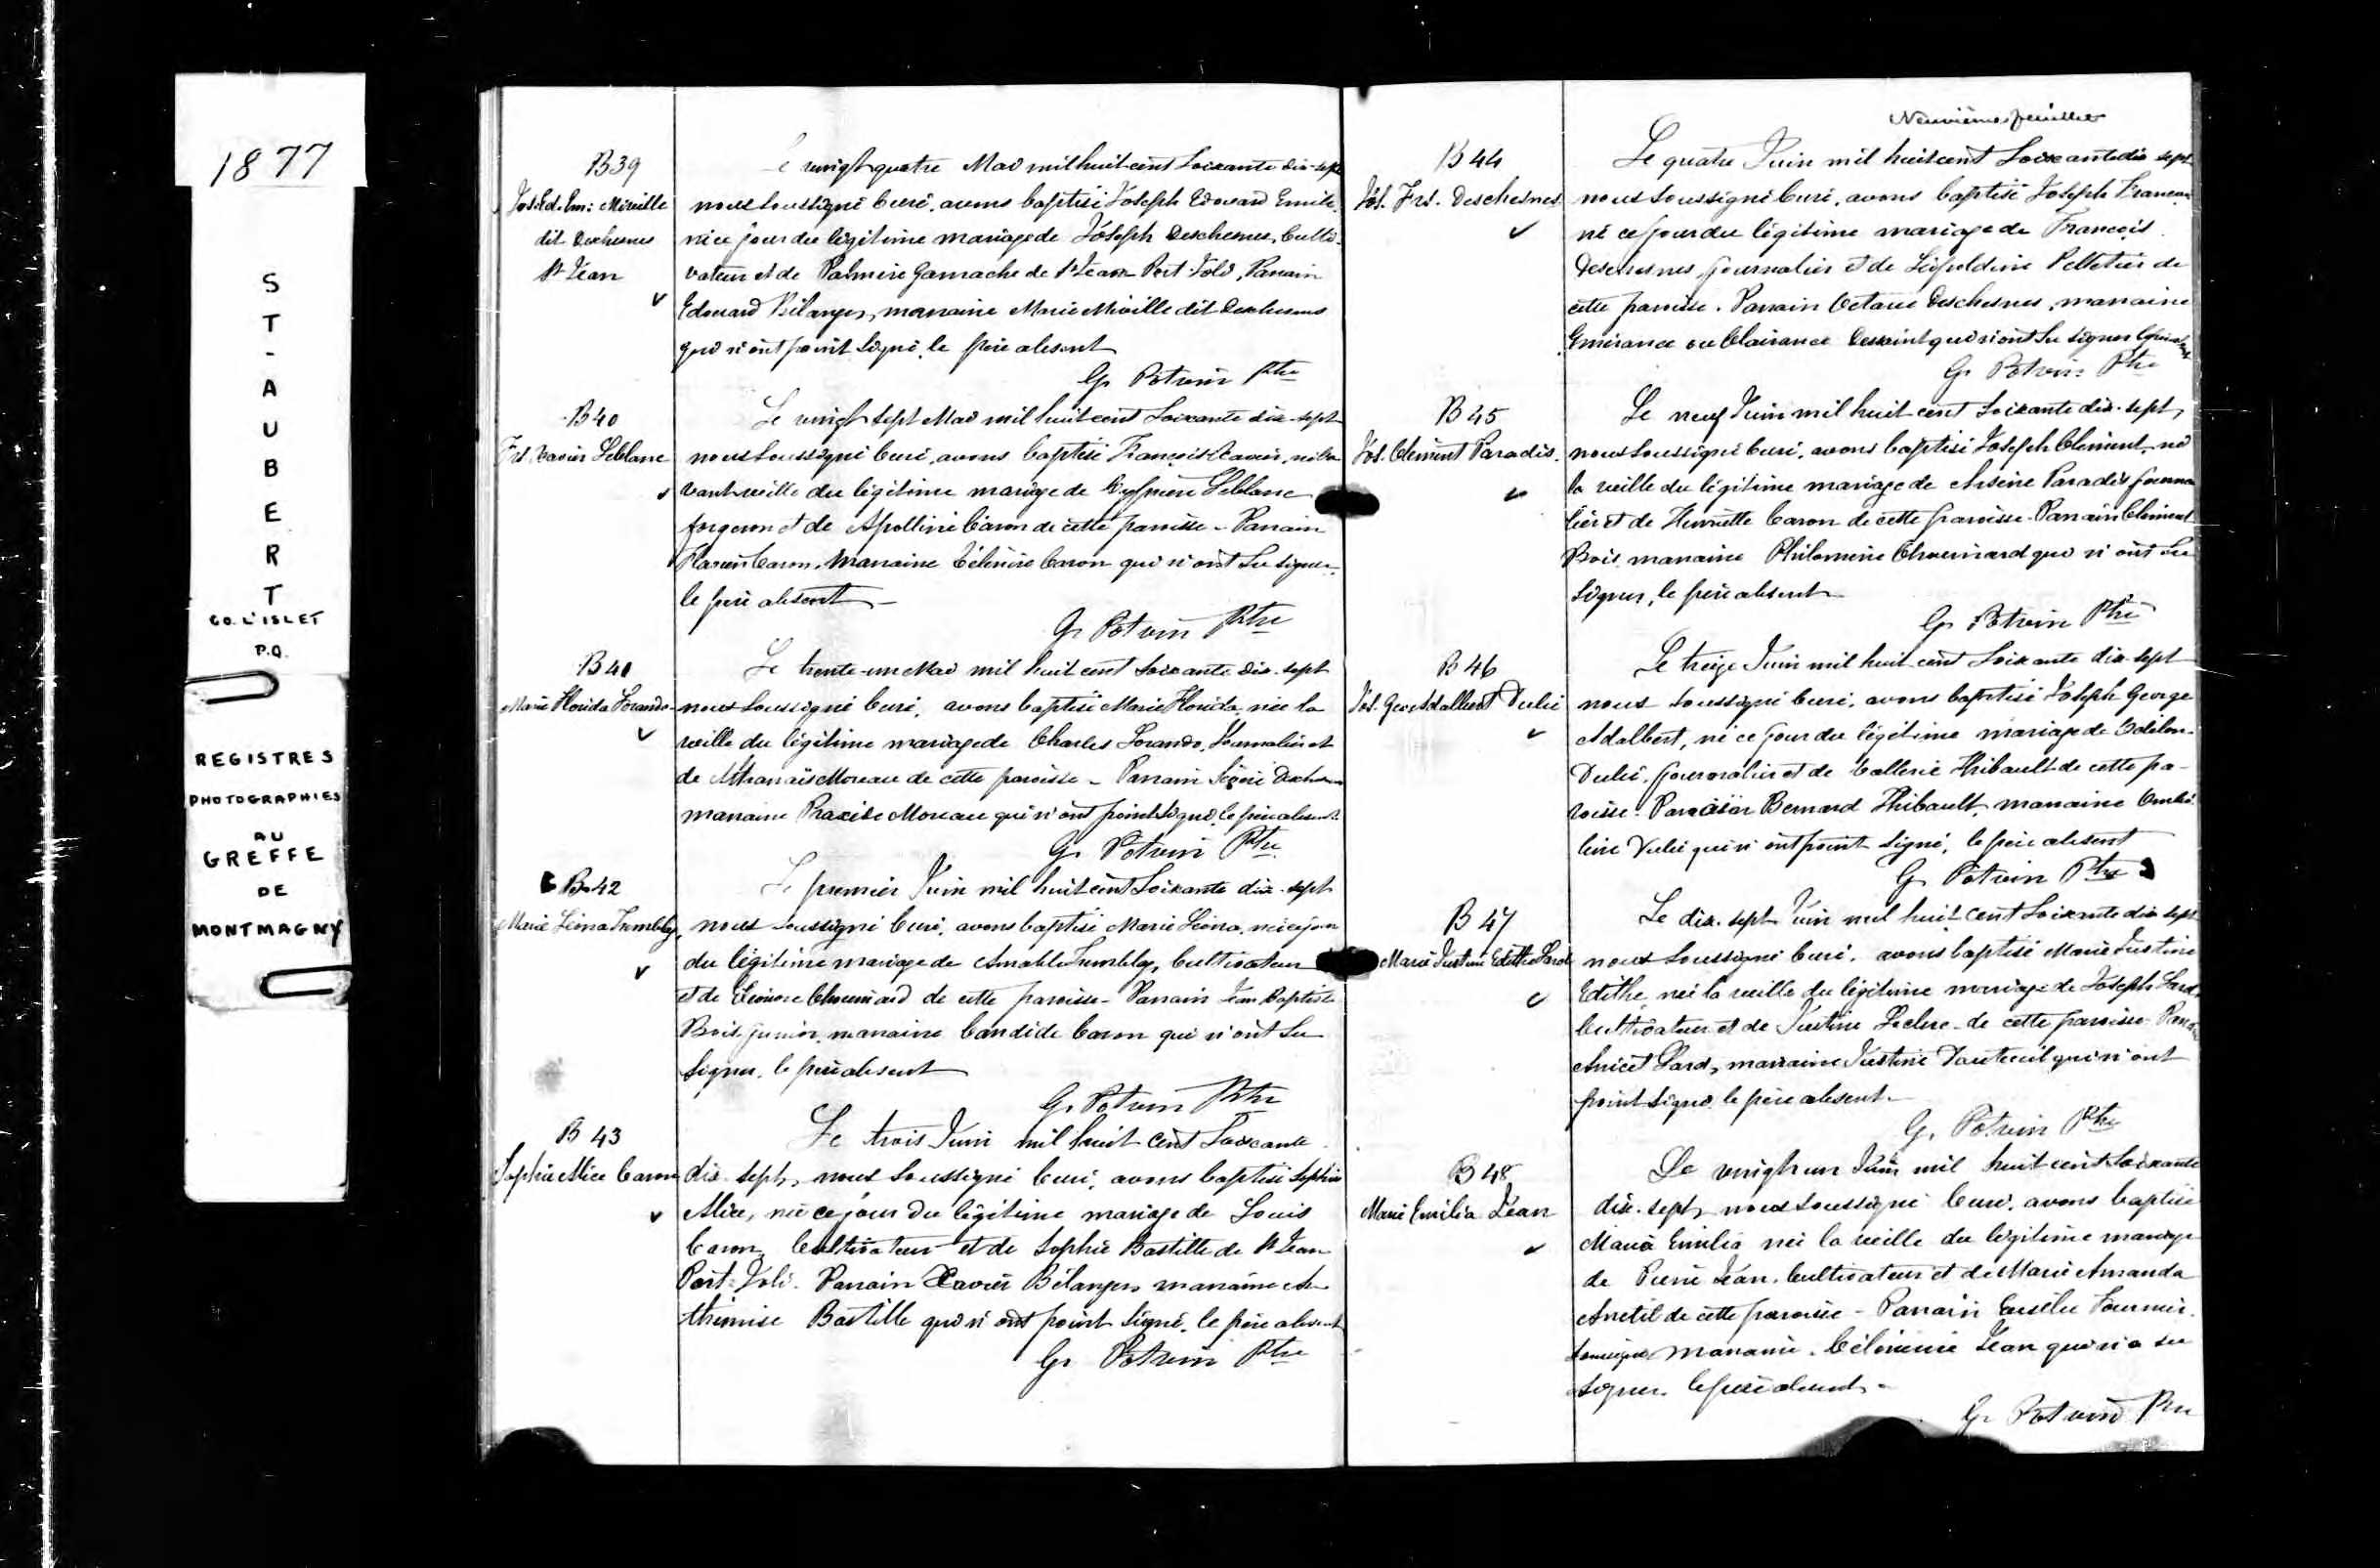 1877
ST-AUBERT
CO. L'ISLET
P.Q.
REGISTRES
PHOTOGRAPHIES
AU
GREFFE
DE
MONTMAGNY
B39
Jos. Ed. Em: Miville
dit Deschesnes
St Jean
vingt quatre Mai mil huit cent soixante dix-sept
nous soussigné Curé, avons baptisé Joseph Edouard Emile
né ce jour du légitime mariage de Joseph Deschesnes, Culti-
vateur et de Palmire Gamache de St Jean Port Joli, Parrain
Edouard Bélanger, marraine Marie Miville dit Deschesnes
qui n'ont point signé, le père absent
G. Potvin Ptre
B40
Frs. Xavier Leblanc
Le vingt sept Mai mil huit cent soixante dix-sept
nous soussigné Curé, avons baptisé François Xavier, né l'a
vant veille du légitime mariage de Leblanc
forgeron et de Apolline Caron de cette paroisse - Parrain
Caron, Marraine Célénire Caron qui n'ont su signer,
le père absent -
G. Potvin Ptre
B41
Marie Florida Lorando
Le trente-un Mai mil huit cent soixante dix-sept
nous soussigné Curé, avons baptisé Marie Florida, née la
veille du légitime mariage de Charles Lorando, Journalier et
de Athanaïs Moreau de cette paroisse - Parrain
marraine Praxède Moreau qui n'ont point signé, le père absent.
G. Potvin Ptre
B42
Marie Léona Tremblay
Le premier Juin mil huit cent soixante dix-sept
nous soussigné Curé, avons baptisé Marie Léona, née ce jour
du légitime mariage de Amable Tremblay, Cultivateur
et de Léonore Chouinard de cette paroisse - Parrain Jean Baptiste
Bois junior, marraine Candide Caron qui n'ont su
signer, le père absent
G. Potvin Ptre
B 43
Sophie Alice Caron
Le trois Juin mil huit cent soixante
dix-sept, nous soussigné Curé, avons baptisé Sophie
Alice, née ce jour du légitime mariage de Louis
Caron, Cultivateur et de Sophie Bastille de St Jean
Port-Joli. Parrain Xavier Bélanger marraine Ar
thémise Bastille qui n'ont point signé, le père absent
G. Potvin Ptre
Neuvième feuillet
B 44
Jos. Frs. Deschesnes
Le quatre Juin mil huit cent soixante dix sept
nous soussigné Curé, avons baptisé Joseph François
né ce jour du légitime mariage de François
Deschesnes, journalier et de Léopoldine Pelletier de
cette paroisse. Parrain Octave Deschesnes, marraine
Emérance ou Clairance qui n'ont su signer
G. Potvin Ptre
B 45
Jos. Clément Paradis.
Le neuf Juin mil huit cent soixante dix-sept,
nous soussigné Curé, avons baptisé Joseph Clément, né
la veille du légitime mariage de Arsène Paradis journa
lier et de Henriette Caron de cette paroisse - Parrain Clément
Bois, marraine Philomène Chouinard qui n'ont su
signer, le père absent
G. Potvin Ptre
B 46
Jos. Geo. Adalbert Dubé
Le treize Juin mil huit cent soixante dix-sept
nous soussigné Curé, avons baptisé Joseph George
Adalbert, né ce jour du légitime mariage de Odilon
Dubé, journalier et de Thibault de cette pa-
roisse. Parrain Bernard Thibault, marraine Ombé
line Dubé qui n'ont point signé, le père absent
G. Potvin Ptre
B 47
Marie Justine Edithe Lard
Le dix-sept Juin mil huit cent soixante dix sept
nous soussigné Curé, avons baptisé Marie Justine
Edithe née la veille du légitime mariage de Joseph Lard,
Cultivateur et de Justine Leclerc de cette paroisse - Parrain
Anicet Lard, marraine Justine Dauteuil qui n'ont
point signé, le père absent.
G. Potvin Ptre
B 48
Marie Emilia Jean
Le vingt un Juin mil huit cent soixante
dix-sept, nous soussigné Curé, avons baptisé
Marie Emilia née la veille du légitime mariage
de Pierre Jean, Cultivateur et de Marie Amanda
Anctil de cette paroisse - Parrain Eusèbe Fournier
marraine, Jean qui n'a su
signer, le père absent -
G. Potvin Ptre